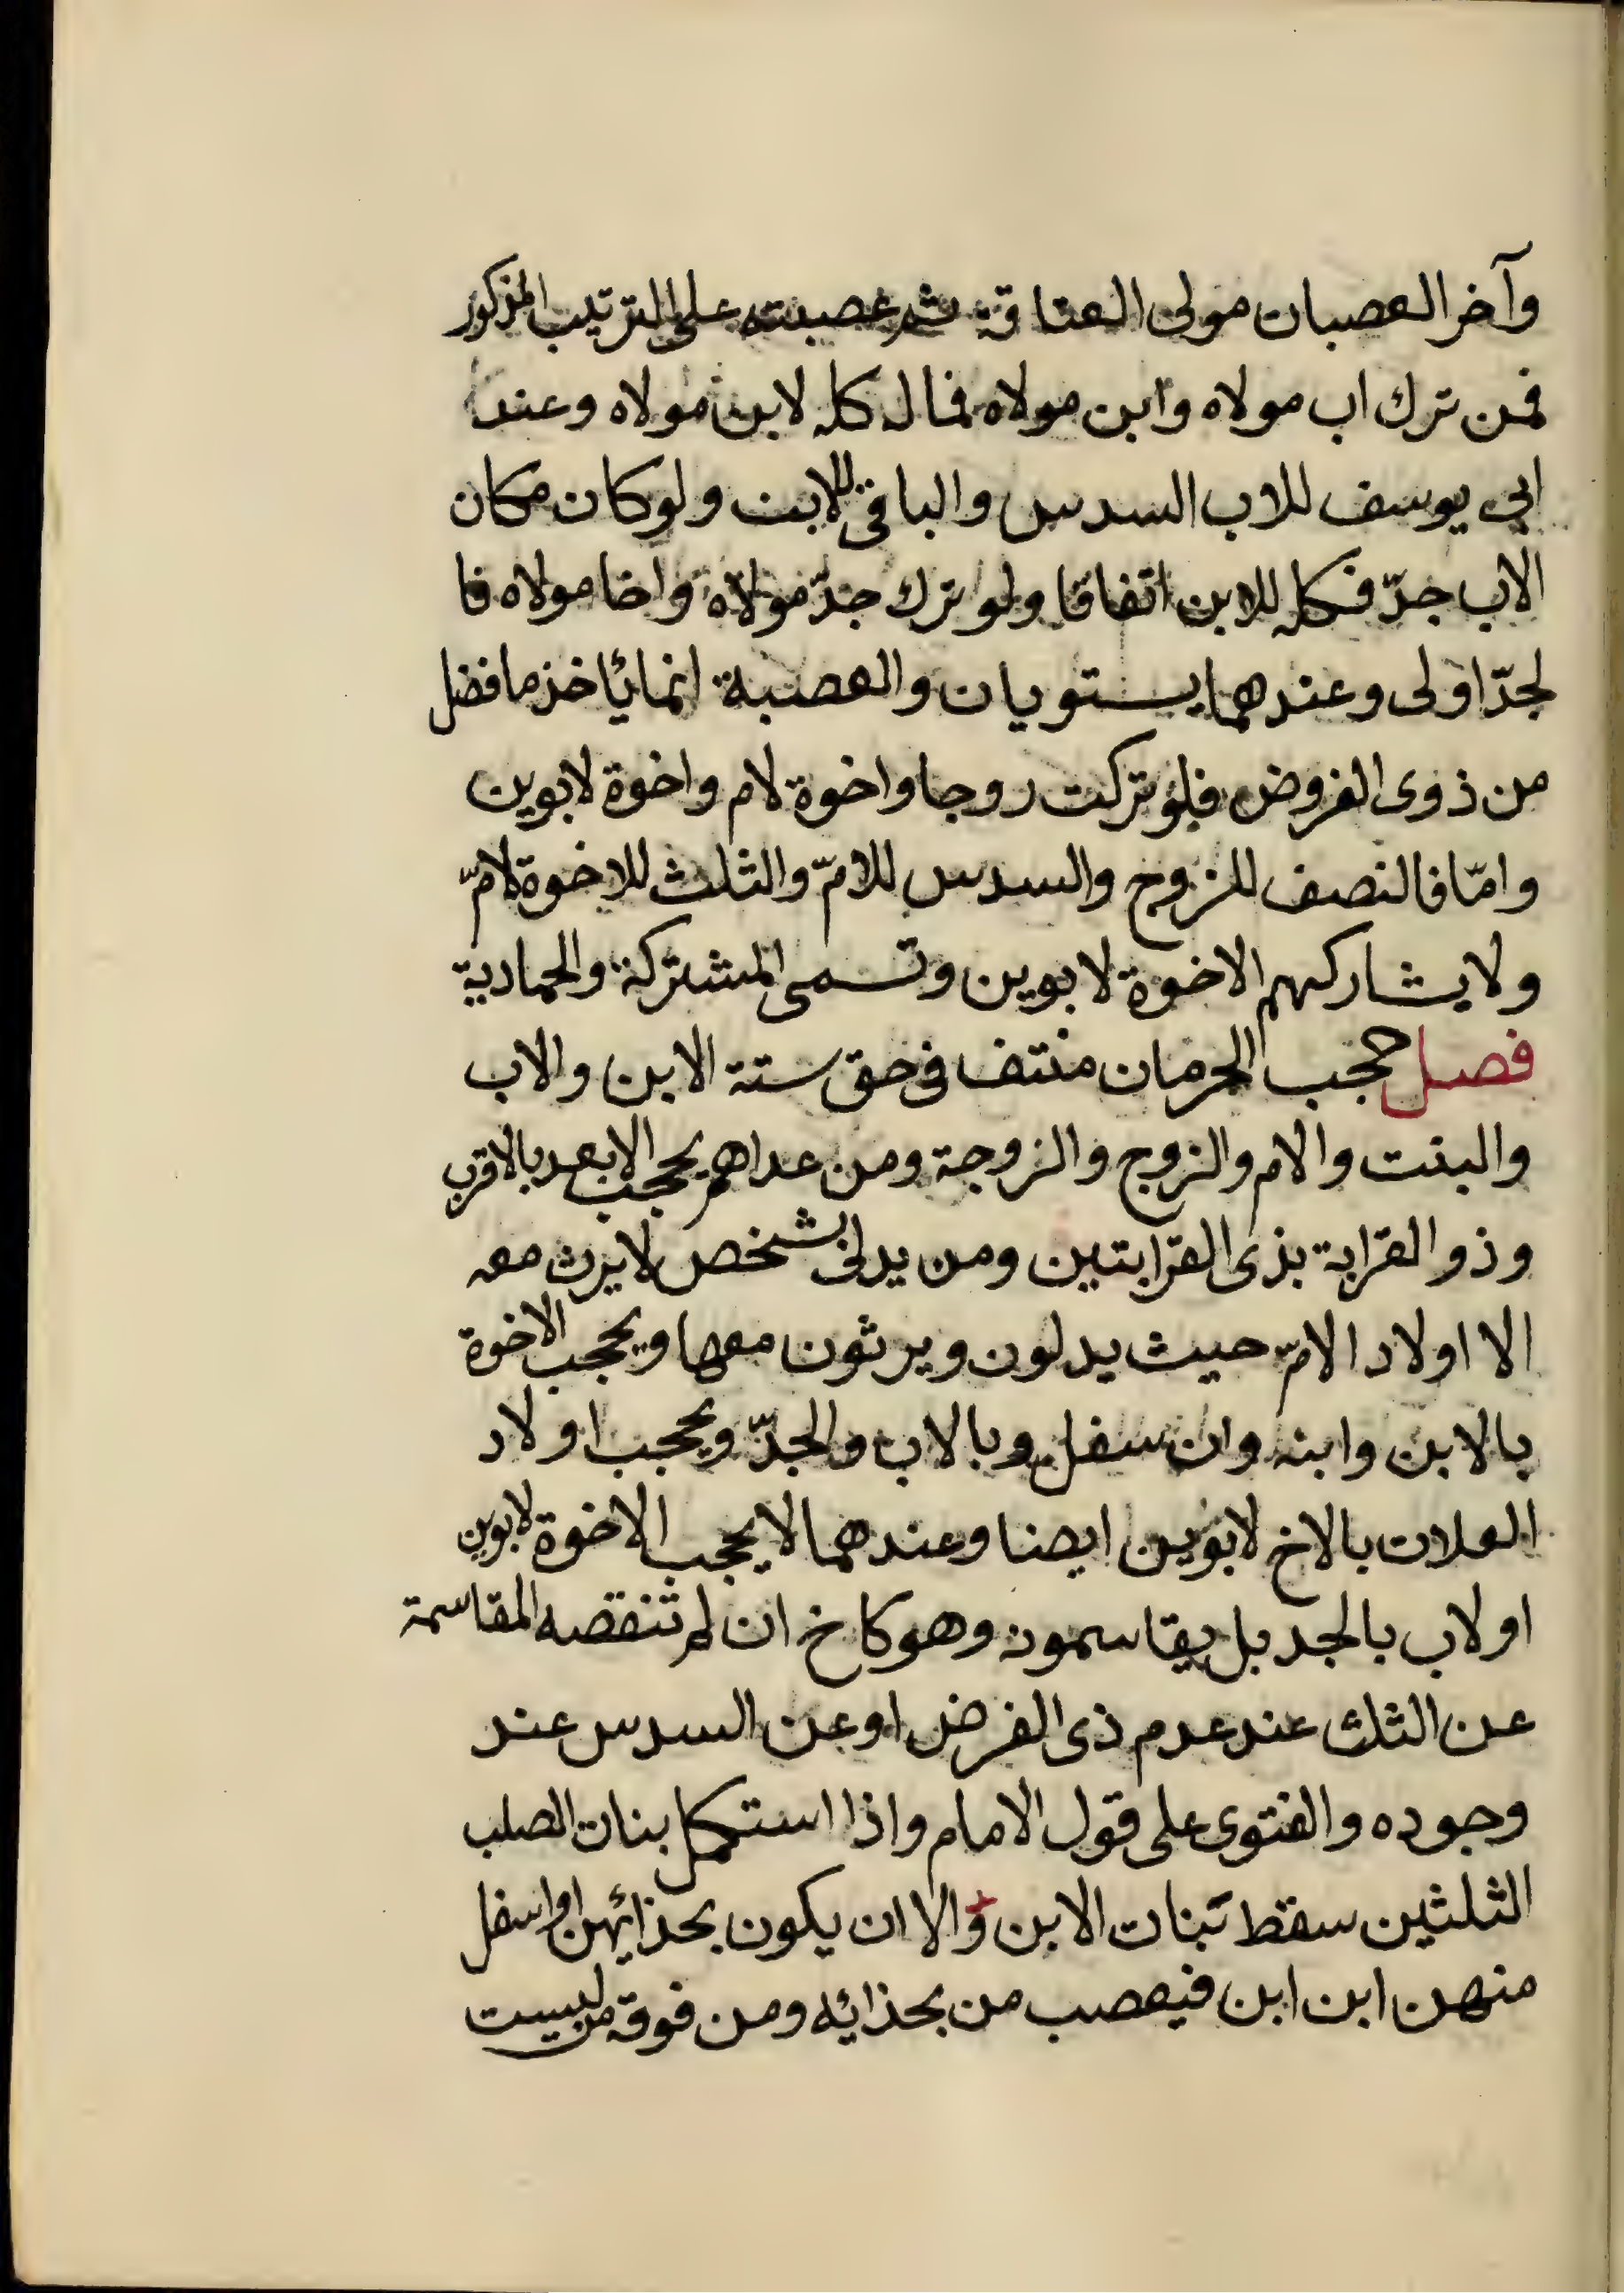 وآخر العصبات مولى العتاقة ثم عصبته على الترتيب المذكور
فمن ترك اب مولاه وابن مولاه فماله كله لابن مولاه وعند
ابي يوسف للاب السدس والباقي للابن ولو كان مكان
الاب جدّ فكله للابن اتفاقا ولو ترك جدّ مولاه واخا مولاه فا
لجدّ اولى وعندهما يستويان والعصبة انما يأخذ ما فضل
من ذوى الفروض فلو تركت زوجا واخوة لام واخوة لابوين
وامّا فالنصف للزوج والسدس للامّ والثلث للاخوة لامّ
ولا يشاركهم الاخوة لابوين وتسمى المشتركة والحمارية
فصل حجب الحرمان منتف فى حق ستة الابن والاب
والبنت والام والزوج والزوجة ومن عداهم يحجب الابعد بالاقرب
وذو القرابة بذى القرابتين ومن يدلى بشخص لا يرث معه
الا اولاد الامّ حيث يدلون ويرثون معها ويحجب الاخوة
بالابن وابنه وان سفل وبالاب والجدّ ويحجب اولاد
العلات بالاخ لابوين ايضا وعندهما لا يحجب الاخوة لابوين
اولاب بالجد بل يقاسمونه وهو كاخ ان لم تنقصه المقاسمة
عن الثلث عند عدم ذى الفرض او عن السدس عند
وجوده والفتوى على قول الامام واذا استكمل بنات الصلب
الثلثين سقط بنات الابن والا ان يكون بحذائهن او اسفل
منهن ابن ابن فيعصب من بحذائه ومن فوقه من ليست